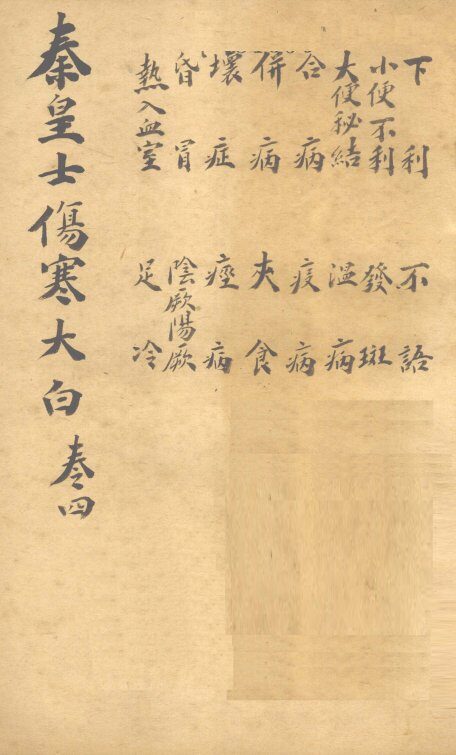 下利 不語
小便不利 發斑
大便秘結 温病
合病 疫病
併病 夾食
壞症 痙病
昏冒 陰厥陽厥
熱入血室 足冷
秦皇士傷寒大白 卷四